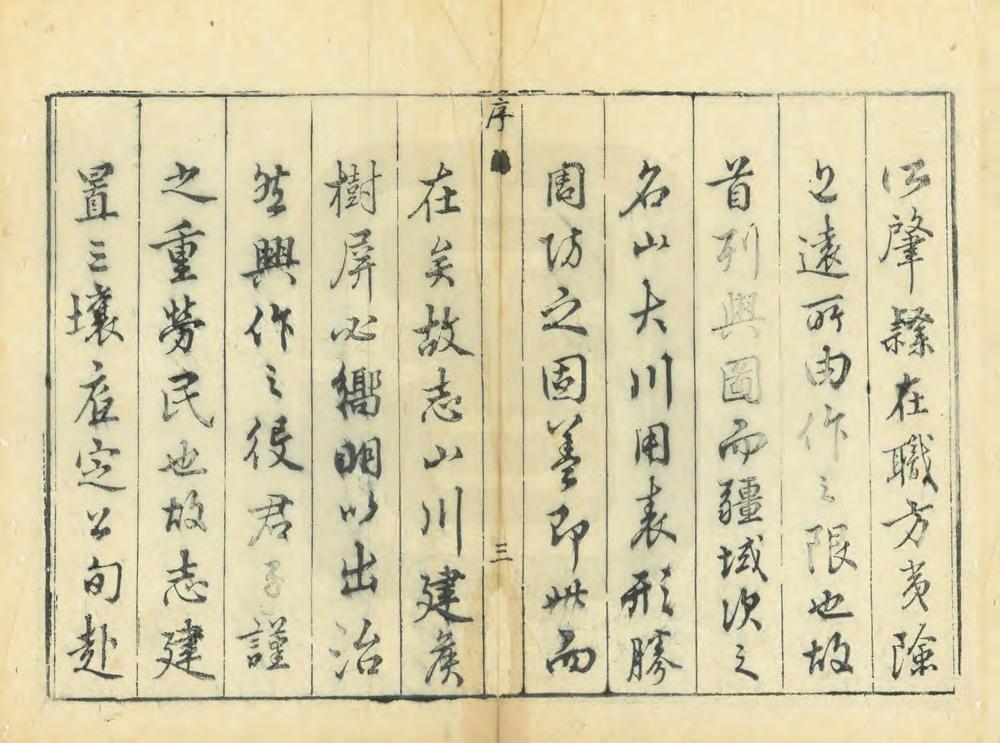 所肇繇在職方夷險
之遠所由作之限也故
首列輿圖而疆域次之
名山大川用表形勝
周防之固蓋即此而
序
三
在矣故志山川建侯
樹屏必嚮明以出治
然興作之役君子謹
之重勞民也故志建
置三壤底定公旬赴